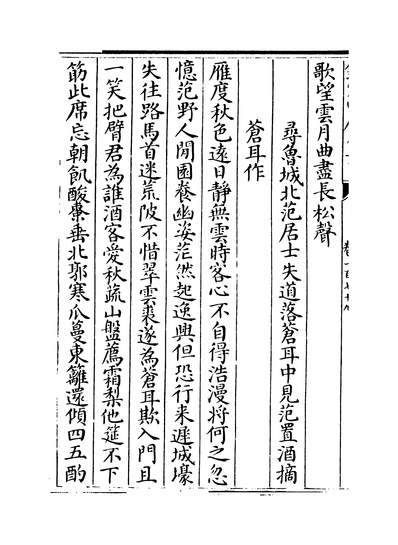 歌望雲月曲盡長松聲
尋魯城北范居士失道落蒼耳中見范置酒摘
蒼耳作
雁度秋色遠日靜無雲時客心不自得浩漫將何之忽
憶范野人閒園養幽姿茫然起逸興但恐行来遲城壕
失往路馬首迷荒陂不惜翠雲裘遂為蒼耳欺入門且
一笑把臂君為誰酒客愛秋蔬山盤薦霜梨他筵不下
筯此席忘朝飢酸棗垂北郭寒瓜蔓東籬還傾四五酌